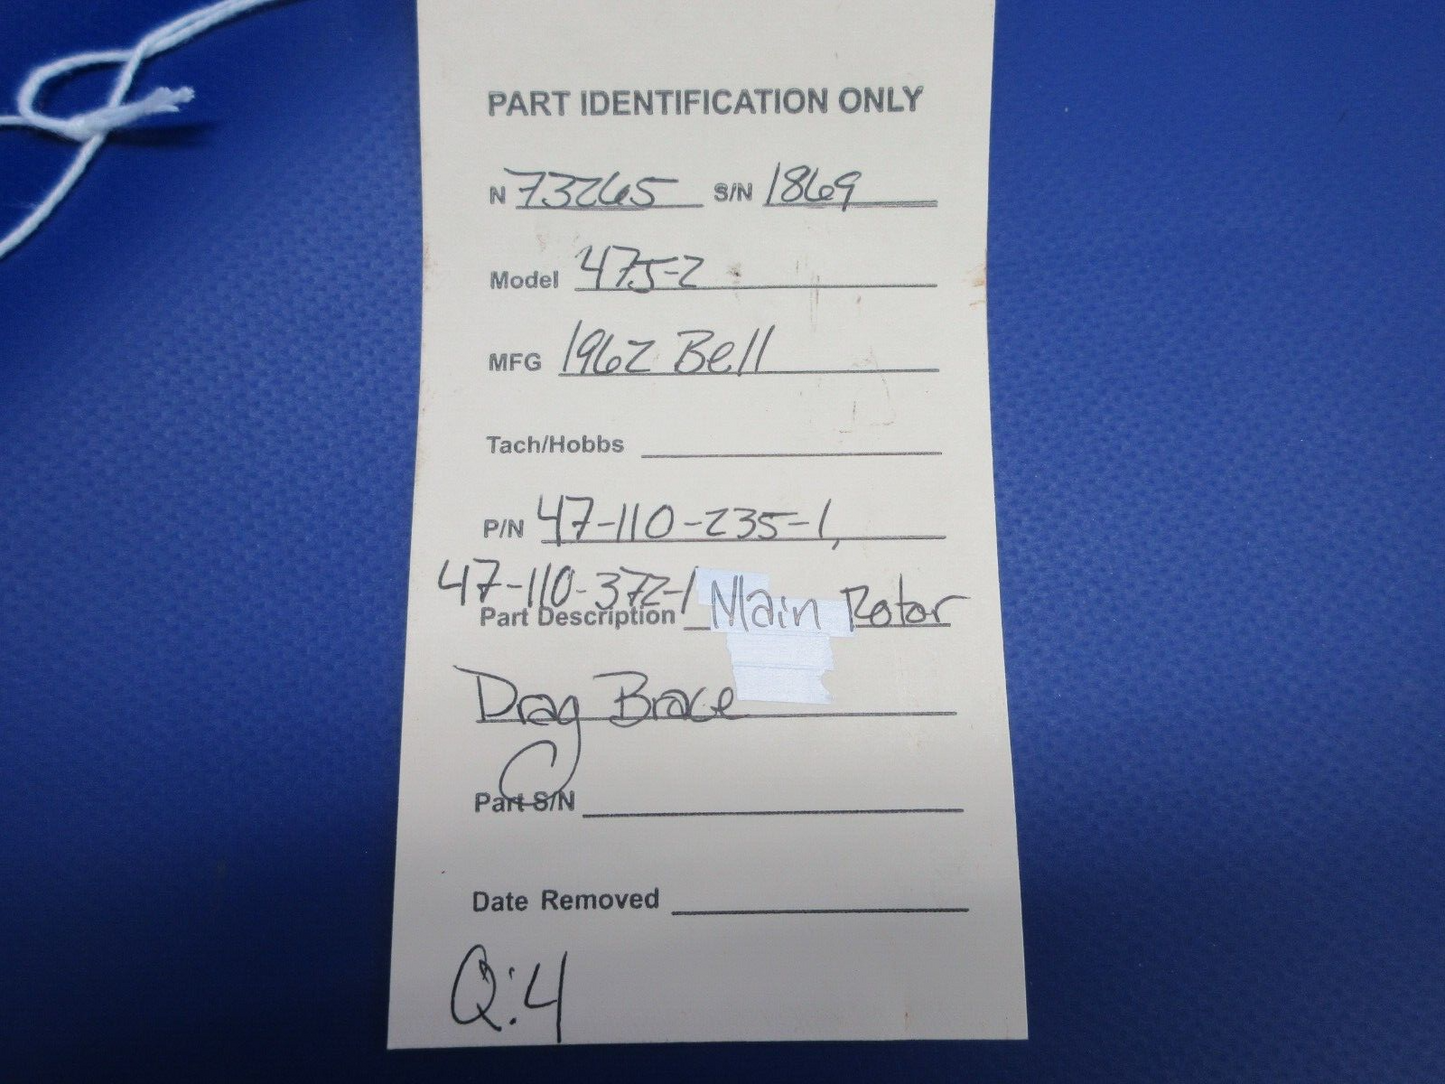 PART IDENTIFICATION ONLY
N 73265 S/N 1869
Model 47J-2
MFG 1962 Bell
Tach/Hobbs
P/N 47-110-235-1,
47-110-372-1
Part Description Main Rotor
Drag Brace
Part S/N
Date Removed
Q:4